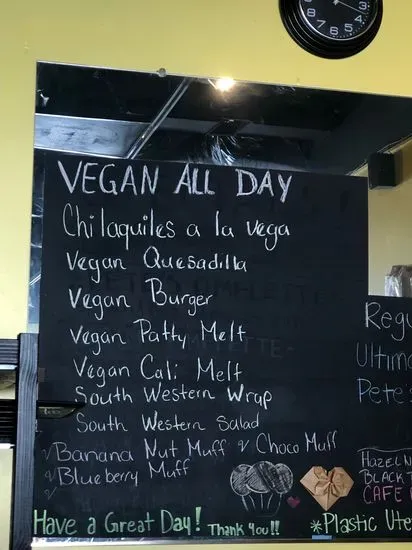 VEGAN ALL DAY
Chilaquiles a la vega
Vegan Quesadilla
Vegan Burger
Vegan Patty Melt
Vegan Cali Melt
South Western Wrap
South Western Salad
√Banana Nut Muff √ Choco Muff
√Blueberry Muff
√
Have a Great Day! Thank You!!
Regu
Ultima
Pete's
HAZELN
BLACK T
CAFE
*Plastic Ute